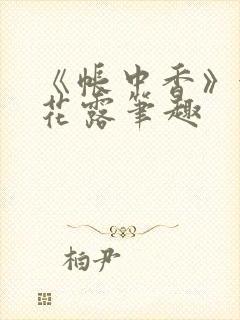 《帐中香》
花露笔趣
柏尹